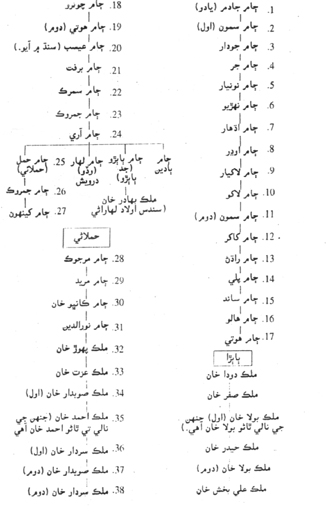 1. ڄام ڄادم (يادو)
2. ڄام سمون (اول)
3. ڄام جودار
4. ڄام جر
5. ڄام نونيار
6. ڄام نهڙيو
7. ڄام اڌار
8. ڄام اوڍر
9. ڄام لاکيار
10. ڄام لاکو
11. ڄام سمون (دوم)
12. ڄام ڪاڪر
13. ڄام راڌڻ
14. ڄام پلي
15. ڄام ساند
16. ڄام هالو
17. ڄام هوتي
پاپڙا
ملڪ دودا خان
ملڪ صفر خان
ملڪ بولا خان (اول) جنهن
جي نالي ٿاڻو بولا خان آهي.)
ملڪ حيدر خان
ملڪ بولا خان (دوم)
ملڪ علي بخش خان
18. ڄام چونرو
19. ڄام هوتي (دوم)
20. ڄام عيسب (سنڌ ۾ آيو.)
21. ڄام برفت
22. ڄام سمرڪ
23. ڄام جمروڪ
24. ڄام آري
ڄام
پادين
ڄام پاپڙو
(جد
پاپڙو)
ڄام لهار
(وڏو)
درويش
25. ڄام حمل
(حملاڻي)
ملڪ بهادر خان
(سندس اولاد لهاراڻي)
26. ڄام جمروڪ
27. ڄام ڪينهون
حملاڻي
28. ڄام مرجوڪ
29. ڄام مريد
30. ڄام ڪانڀو خان
31. ڄام نورالدين
32. ملڪ پهوڙ خان
33. ملڪ عزت خان
34. ملڪ صوبدار خان (اول)
35. ملڪ احمد خان (جنهن جي
نالي تي ٿاڻو احمد خان آهي)
36. ملڪ سردار خان (اول)
37. ملڪ صوبدار خان (دوم)
38. ملڪ سردار خان (دوم)